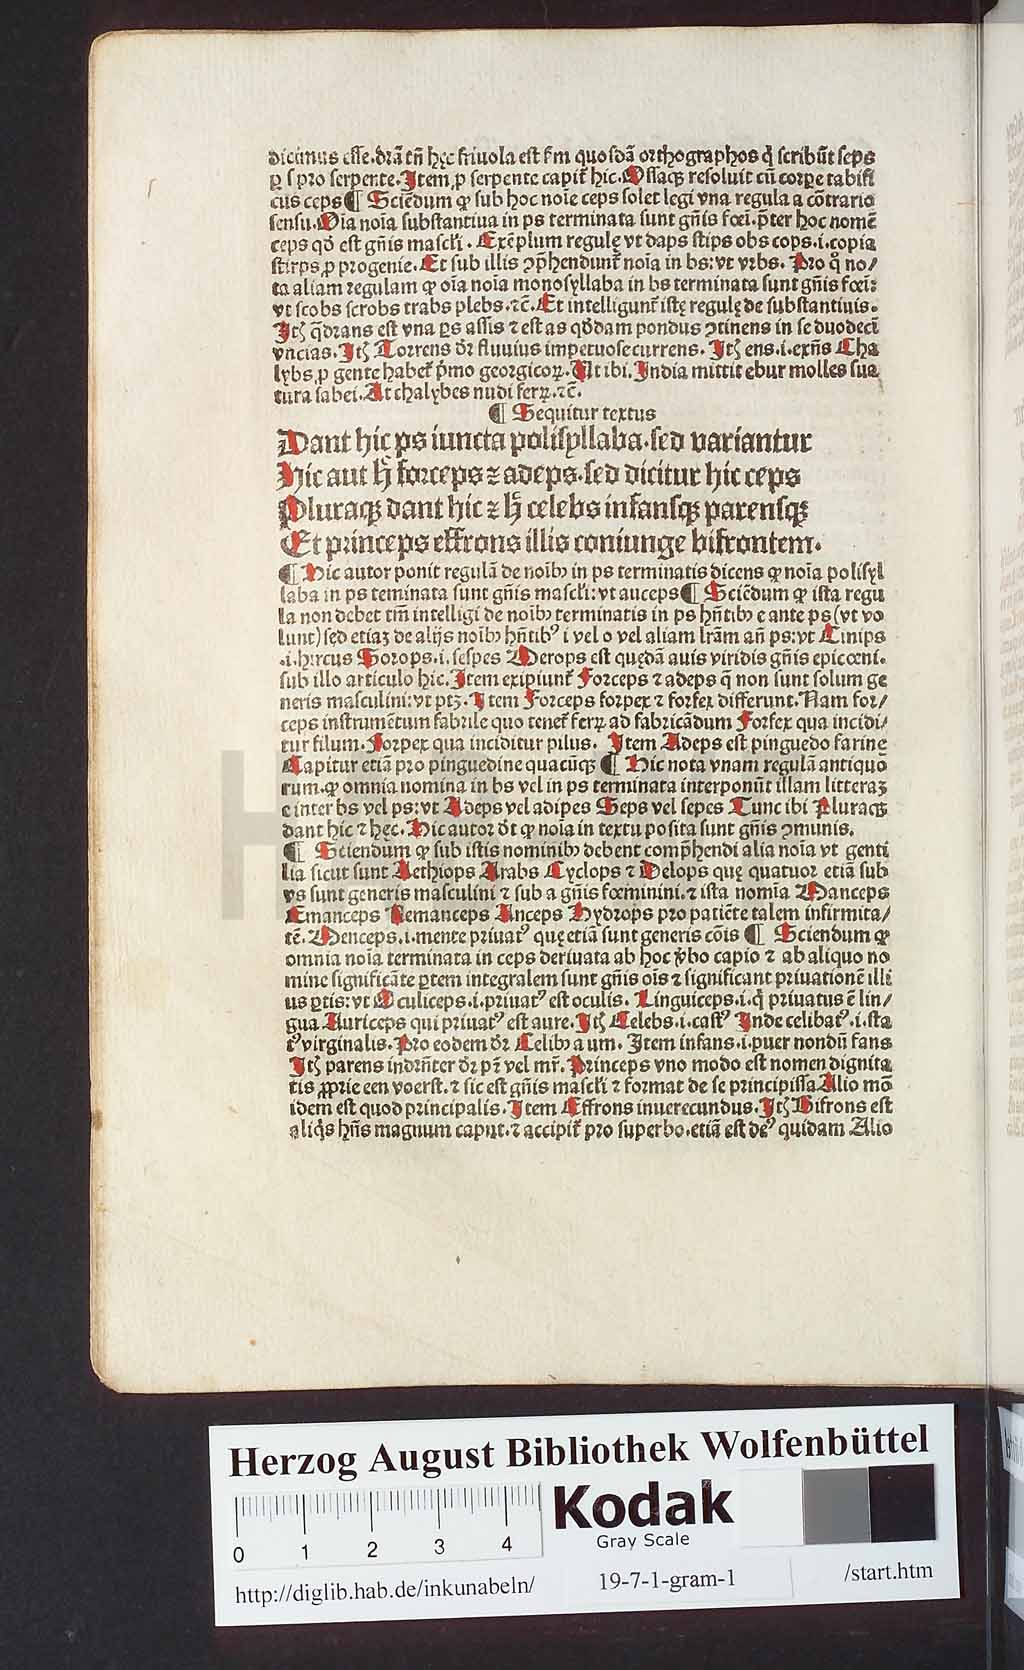 dicimus esse. dr̄ā tñ hęc friuola est ẜm quosdā orthographos q̇ scribūt seps
ꝑ s pro serpente. Item ꝓ serpente capit᷑ hic. Ossaqꝫ resoluit cū corpe tabifi
cus ceps ¶ Sciēdum ꝙ sub hoc noīe ceps solet legi vna regula a cōtrario
sensu. Oīa noīa substantiua in ps terminata sunt gn̄is fœi. p̄ter hoc nomē
ceps qđ est gn̄is mascl̓i. Exēplum regulę vt daps stips obs cops .i. copia
stirps ꝓ progenie. Et sub illis ꝯp̄hendunt᷑ noīa in bs: vt vrbs. Pro q̊ no/
ta aliam regulam ꝙ oīa noīa monosyllaba in bs terminata sunt gn̄is fœi:
vt scobs scrobs trabs plebs. ⁊c̄. Et intelligunt᷑ istę regulę de substantiuis.
Itꝫ q̄drans est vna ꝑs assis ⁊ est as qđdam pondus ꝯtinens in se duodecī
vncias. Itꝫ Torrens dr̄ fluuius impetuose currens. Itꝫ ens .i. exn̄s Cha
lybs ꝓ gente habet᷑ p̄mo georgicoꝝ. Vt ibi. India mittit ebur molles sua
tura sabei. At chalybes nudi ferꝝ. ⁊c̄.
¶ Sequitur textus
Dant hic ps iuncta polisyllaba. sed variantur
Hic aut h̄ forceps ⁊ adeps. sed dicitur hic ceps
Pluraqꝫ dant hic ⁊ h̄ celebs infansqꝫ parensqꝫ
Et princeps effrons illis coniunge bifrontem.
¶ Hic autor ponit regulā de noībꝰ in ps terminatis dicens ꝙ noīa polisyl
laba in ps teminata sunt gn̄is mascl̓i: vt auceps ¶ Sciēdum ꝙ ista regu
la non debet tm̄ intelligi de noībꝰ terminatis in ps hn̄tibꝰ e ante ps (vt vo
lunt) sed etiaꝫ de alijs noībꝰ hn̄tibꝰ i vel o vel aliam lr̄am an̄ ps: vt Cinips
.i. hircus Sorops .i. sespes Merops est quędā auis viridis gn̄is epicœni.
sub illo articulo hic. Item exipiunt᷑ Forceps ⁊ adeps q̄ non sunt solum ge
neris masculini: vt ptꝫ. Item Forceps forpex ⁊ forfex differunt. Nam for/
ceps instrumētum fabrile quo tenet᷑ ferꝝ ad fabricādum Forfex qua incidi/
tur filum. Forpex qua inciditur pilus. Item Adeps est pinguedo farine
Capitur etiā pro pinguedine quacūqꝫ ¶ Hic nota vnam regulā antiquo
rum. ꝙ omnia nomina in bs vel in ps terminata interponūt illam litteraꝫ
e inter bs vel ps: vt Adeps vel adipes Seps vel sepes Tunc ibi Pluraqꝫ
dant hic ⁊ hęc. Hic autor dt̄ ꝙ noīa in textu posita sunt gn̄is ꝯmunis.
¶ Sciendum ꝙ sub istis nominibꝰ debent comp̄hendi alia noīa vt genti
lia sicut sunt Aethiops Arabs Cyclops ⁊ Pelops quę quatuor etiā sub
vs sunt generis masculini ⁊ sub a gn̄is fœminini. ⁊ ista nomīa Manceps
Emanceps Remanceps Anceps Hydrops pro patiēte talem infirmita/
tē. Menceps .i. mente priuatꝰ quę etiā sunt generis cōis ¶ Sciendum ꝙ
omnia noīa terminata in ceps deriuata ab hoc v̄bo capio ⁊ ab aliquo no
mine significāte ꝑtem integralem sunt gn̄is oīs ⁊ significant priuationē illi
us ꝑtis: vt Oculiceps .i. priuatꝰ est oculis. Linguiceps .i. q̇ priuatus ē lin/
gua Auriceps qui priuatꝰ est aure. Itꝫ Celebs .i. castꝰ Inde celibatꝰ .i. sta
tꝰ virginalis. Pro eodem dr̄ Celibꝰ a um. Item infans .i. puer nondū fans
Itꝫ parens indrn̄ter dr̄ pr̄ vel mr̄. Princeps vno modo est nomen dignita
tis ꝓprie een voerst. ⁊ sic est gn̄is mascl̓i ⁊ format de se principissa Alio mō
idem est quod principalis. Item Effrons inuerecundus. Itꝫ Bifrons est
aliq̇s hn̄s magnum caput. ⁊ accipit᷑ pro superbo. etiā est deꝰ quidam Alio
Herzog August Bibliothek Wolfenbüttel
0 1 2 3 4
Kodak
Gray Scale
http://diglib.hab.de/inkunabeln/ 19-7-1-gram-1 /start.htm